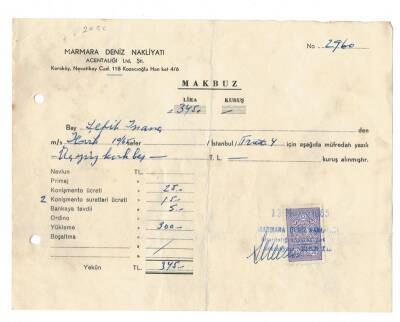 MARMARA DENİZ NAKLİYATI
No 2960
ACENTALIĞI Ltd. Şti.
Karaköy, Necatibey Cad. 118 Kozacıoğlu Han kat 4/6
MAKBUZ
LİRA KURUŞ
345.-
Bay den
m/s 1965 sefer / İstanbul / için aşağıda müfredatı yazılı
Üçyüz kırk beş T. L. kuruş alınmıştır.
Navlun TL.
Primaj
Konişmento ücreti 25.-
2 Konişmento suretleri ücreti 15.-
Bankaya tevdii 5.-
Ordino
Yükleme 300.-
Boşaltma
MARMARA DENİZ
Yekûn TL. 345.-